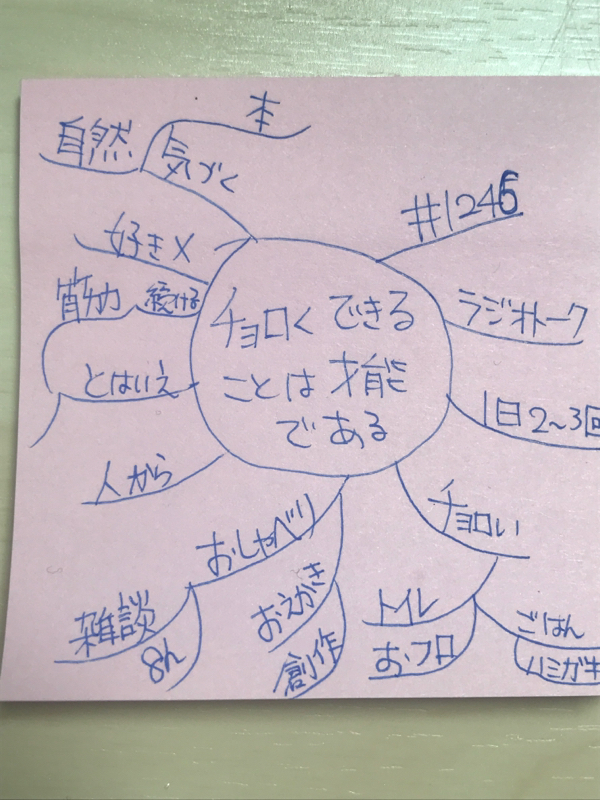 チョロく できる
ことは 才能
である
#1246
ラジオトーク
1日2~3回
チョロい
ごはん
ハミガキ
トイレ
おフロ
おしゃべり
おえかき
創作
雑談
8h
人から
とはいえ
筋力
続ける
好き×
気づく
本
自然